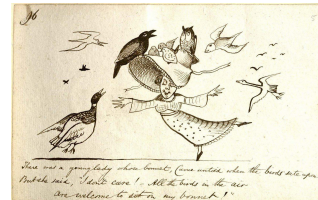 96
There was a young lady whose bonnet, Came untied when the birds sate upon
But she said, "I don't care! - All the birds in the air
are welcome to sit on my bonnet!"